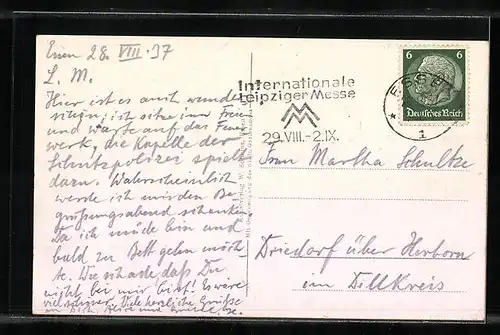 Essen 28. VIII. 37
L. M.
Hier ist es auch wunder
schön; ich sitze im Freien
und warte auf das Feuer
werk, die Kapelle der
Schutzpolizei spielt
dazu. Wahrscheinlich
werde ich mir den Be
grüßungsabend schenken
Da ich müde bin und
bald zu Bett gehen möch
te. Wie schade, daß Du
nicht bei mir bist! Es wäre
viel schöner. Viele herzliche Grüße
Internationale
Leipziger Messe
29.VIII.-2.IX.
ESSEN
1
6 6
Deutsches Reich
Frau Martha Schultze
Driedorf über Herborn
im Dillkreis